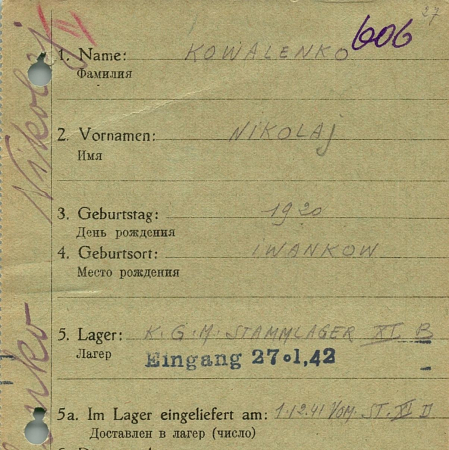 27
1. Name: KOWALENKO 606
Фамилия
Nikolaj
2. Vornamen: NIKOLAJ
Имя
3. Geburtstag: 1920
День рождения
4. Geburtsort: IWANKOW
Место рождения
5. Lager: K.G.M. STAMMLAGER XI B
Лагер
Eingang 27.1.42
5a. Im Lager eingeliefert am: 1.12.41 VOM. ST. XI D
Доставлен в лагер (число)